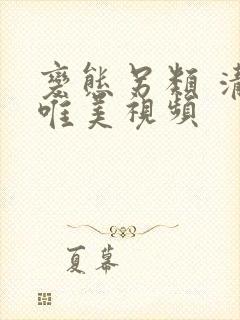 變態另類
唯美視頻
夏幕